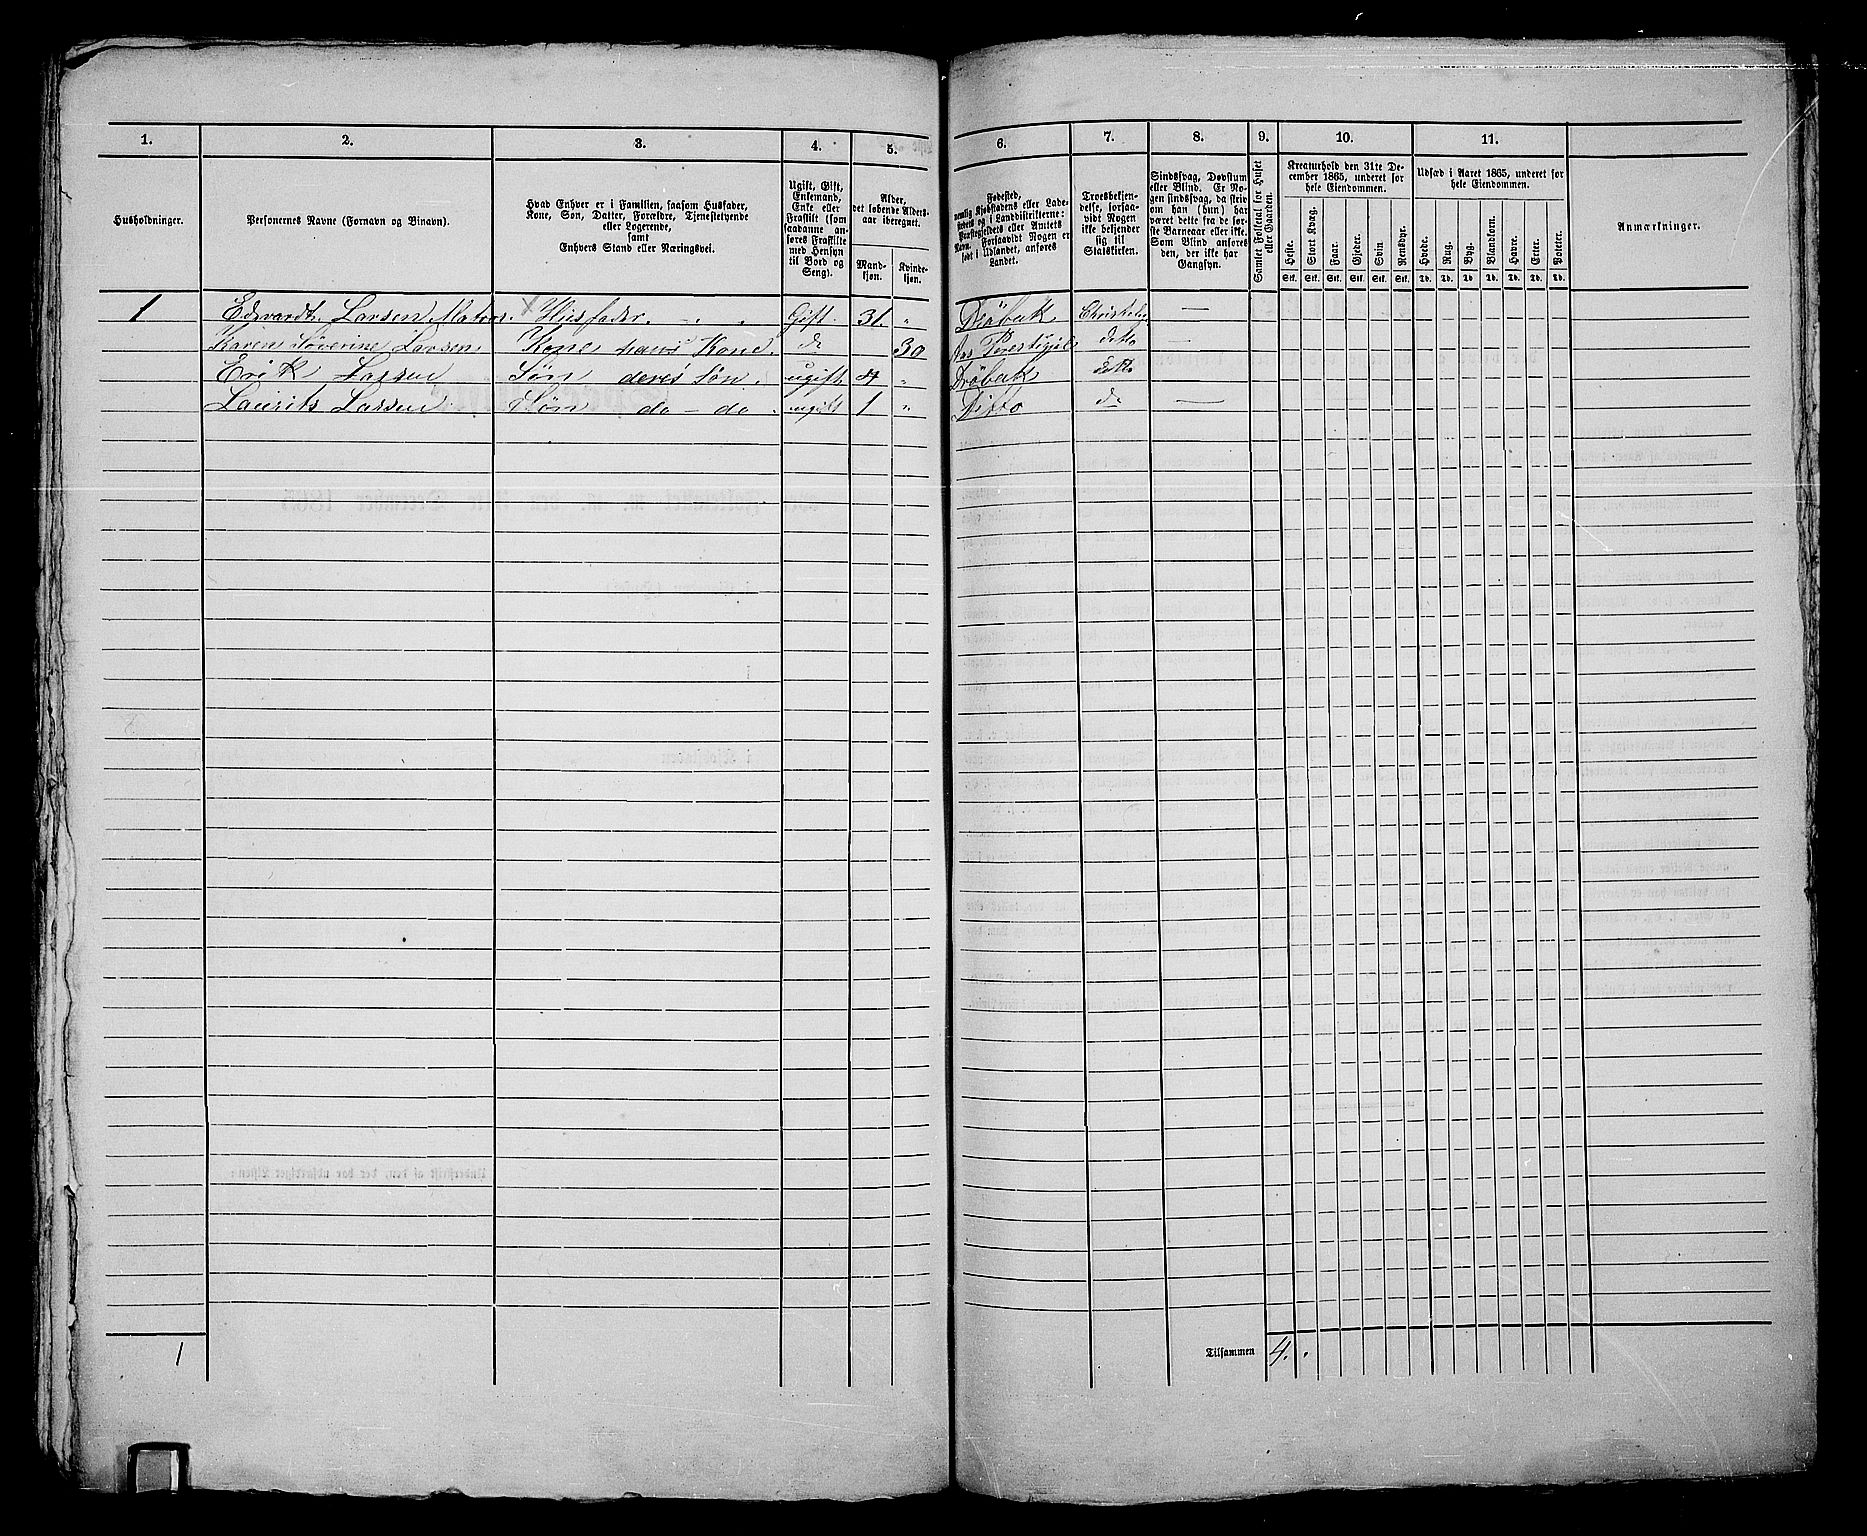 1. 2. 3. 4. 5. 6. 7. 8. 9. 10. 11.
Husholdninger.
Personernes Navne (Fornavn og Binavn).
Hvad Enhver er i Familien, saasom Husfader,
Kone, Søn, Datter, Forældre, Tjenestetyende
eller Logerende,
samt
Enhvers Stand eller Næringsvei.
Ugift, Gift,
Enkemand,
Enke eller
Fraskilt (som
saadanne an-
føres Fraskilte
med Hensyn
til Bord og
Seng).
Alder,
det løbende Alders-
aar iberegnet.
Mand-
kjøn.
Kvinde-
kjøn.
Fødested,
nemlig Kjøbstadens eller Lade-
stedets og i Landdistrikterne:
Præstegjeldets eller Amtets
Navn. Forsaavidt Nogen er
født i Udlandet, anføres
Landet.
Troesbekjen-
delse, forsaa-
vidt Nogen
ikke bekjender
sig til
Statskirken.
Sindssvag, Døvstum
eller Blind. Er No-
gen sindssvag, da skrives
om han (hun) har
været dette fra de før-
ste Barneaar eller ikke.
Som Blind anføres
den, der ikke har
Gangsyn.
Samlet Folketal for Huset
eller Gaarden.
Kreaturhold den 31te De-
cember 1865, underet for
hele Eiendommen.
Heste. Stort Kvæg. Faar. Gjeder. Svin. Rensdyr.
Stk. Stk. Stk. Stk. Stk. Stk.
Udsæd i Aaret 1865, underet for
hele Eiendommen.
Hvede. Rug. Byg. Blandkorn. Havre. Erter. Poteter.
Td. Td. Td. Td. Td. Td. Td.
Anmærkninger.
1 Edvardt Larsen Matros. Husfader. Gift. 31. „ Dröbak Christelig —
Karen Söverine Larsen Kone hans Kone. do 30 Aas ditto —
Erik Larsen Søn deres Søn. ugift 4 „ Dröbak ditto
Laurits Larsen Søn do – do. ugift 1 „ Ditto do —
1
Tilsammen 4.